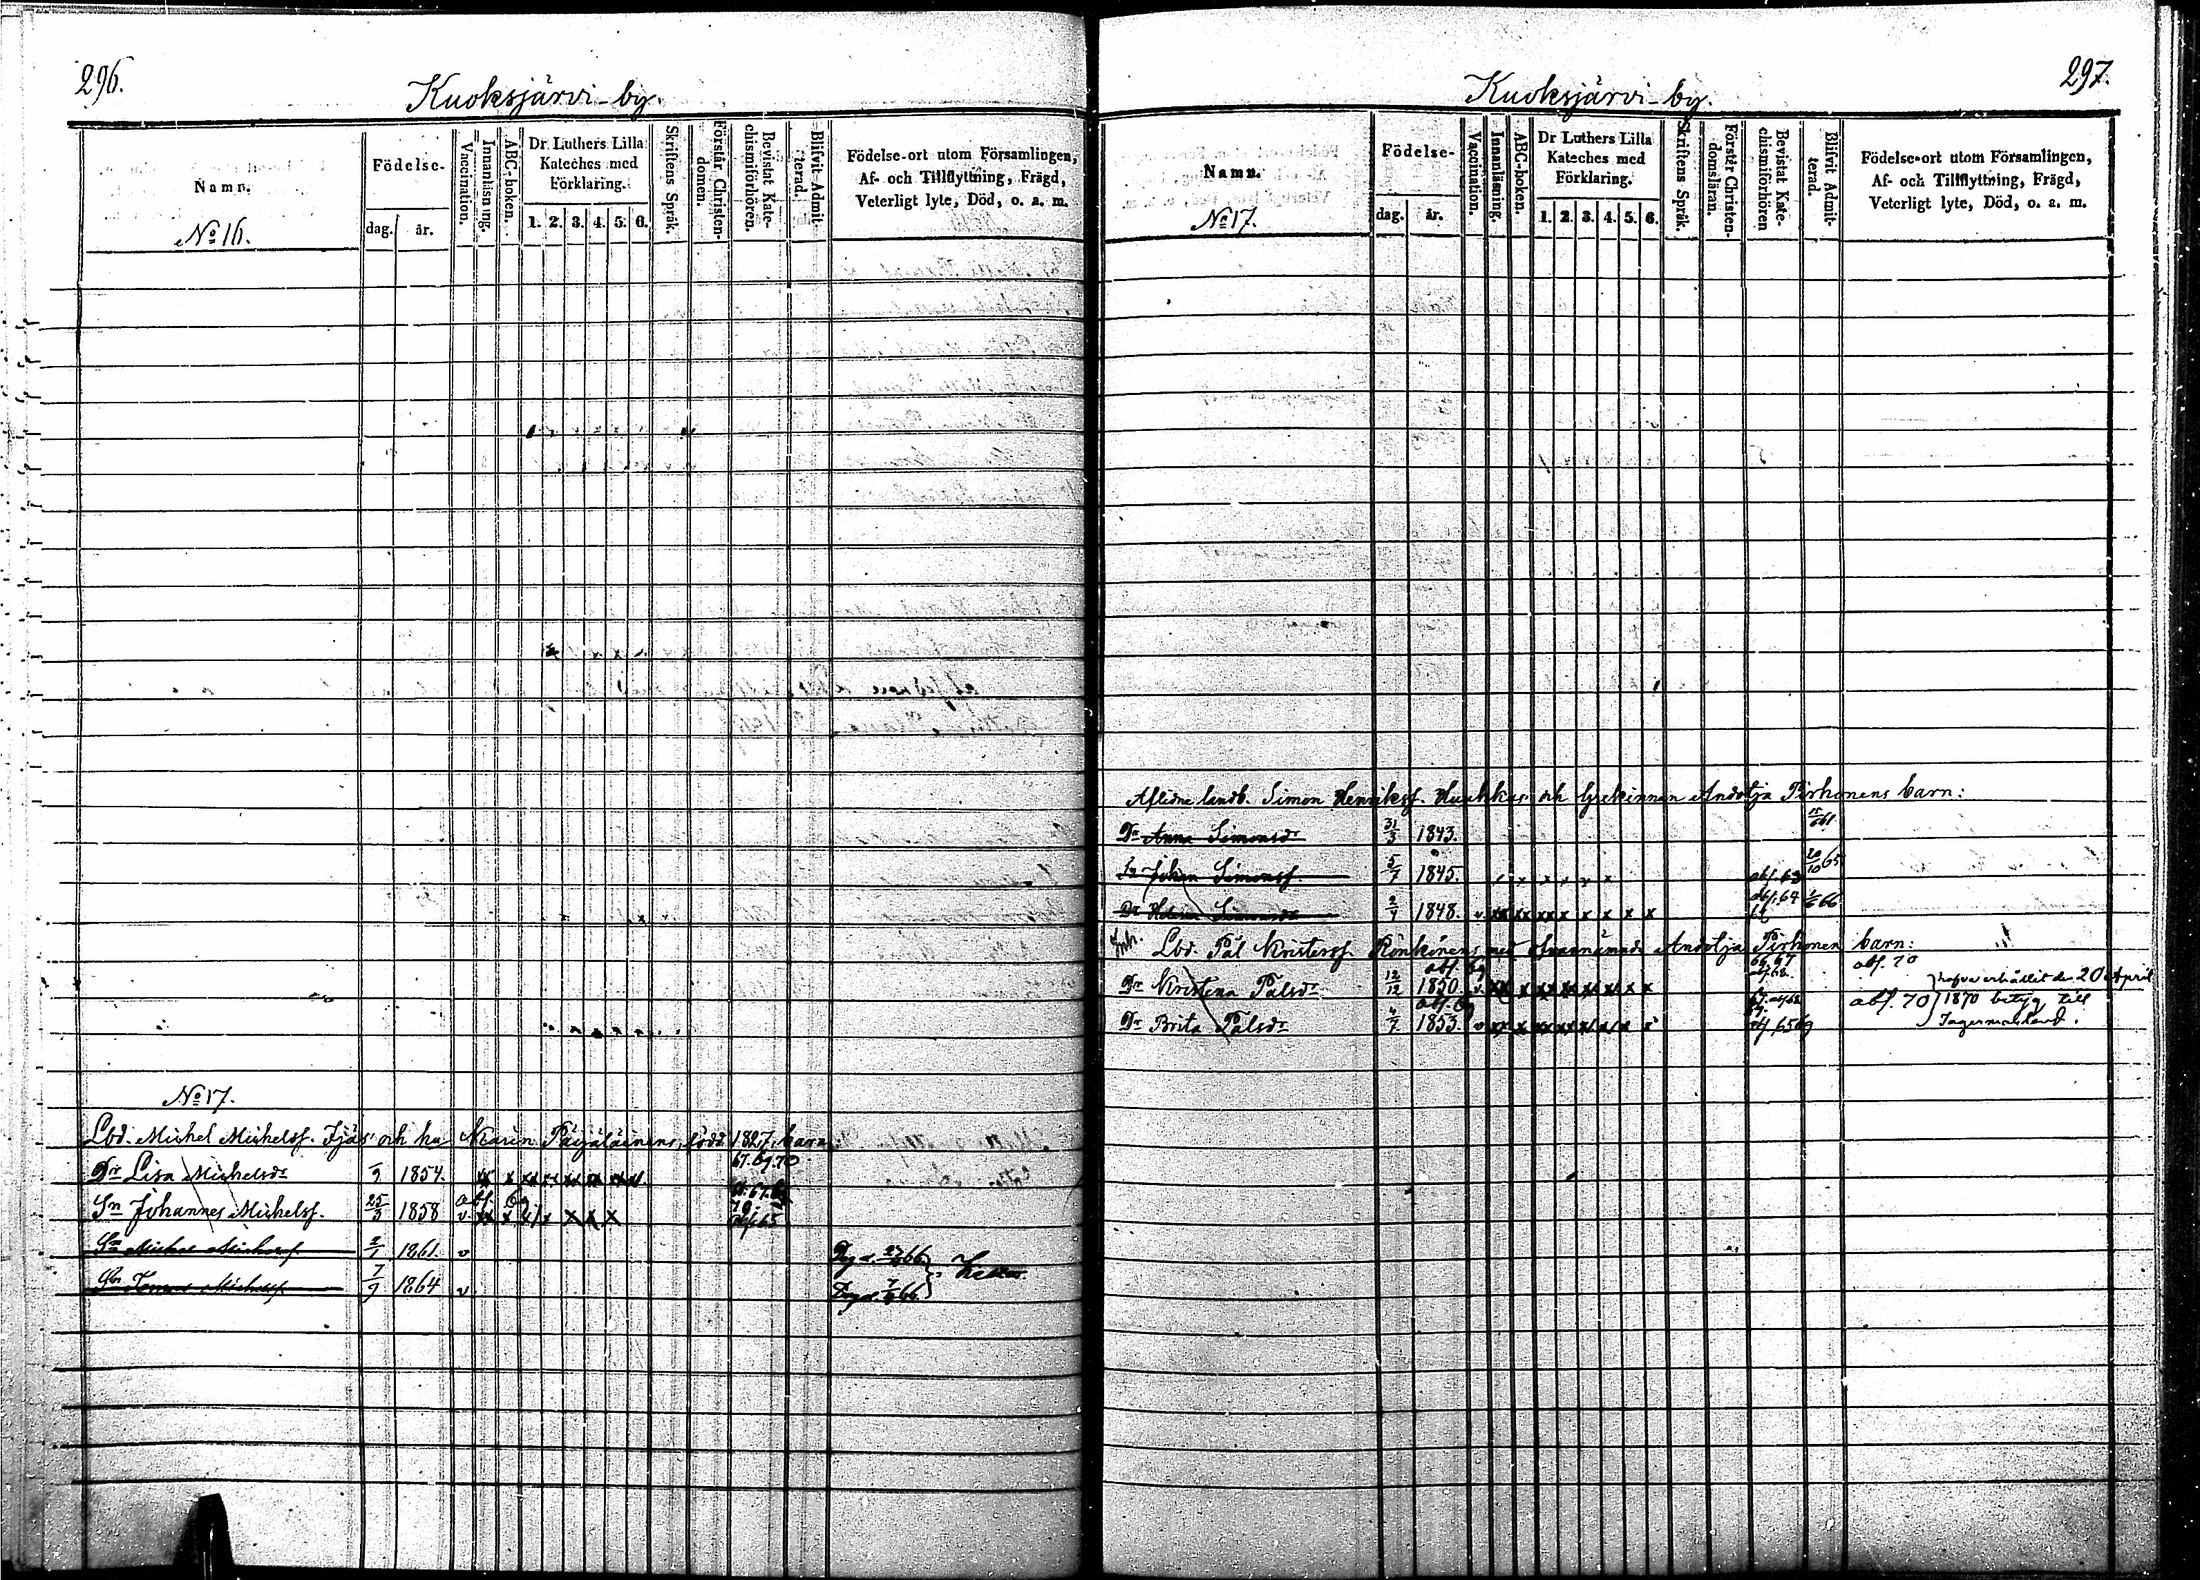 296.
Kuoksjärvi-by.
Namn.
No 16.
Födelse-
dag.
år.
Vaccination.
Innanläsning.
ABC-boken.
Dr. Luthers Lilla
Kateches med
Förklaring.
1. 2. 3. 4. 5. 6.
Skriftens Språk.
Förstår Christen-
domen.
Bevistat Kate-
chismiförhören.
Blifvit Admit-
terad.
Födelse-ort utom Församlingen,
Af- och Tillflyttning, Frägd,
Veterligt lyte, Död, o. a. m.
No 17.
Lbd. Michel Michelss. och hu Karin Pärjäläinens, född 1827, barn:
67. 69. 70
Dr Lisa Michelsdr 9 1854.
Sn Johannes Michelss. 25/3 1858 v abf. 69
70
abf. 65
Sn Michel Michelss. 2/1 1861. v 66
Sn Michelss 7/9 1864 v 66
297.
Kuoksjärvi-by.
Namn.
No 17.
Födelse-
dag.
år.
Vaccination.
Innanläsning.
ABC-boken.
Dr Luthers Lilla
Kateches med
Förklaring.
1. 2. 3. 4. 5. 6.
Skriftens Språk.
Förstår Christen-
domsläran.
Bevistat Kate-
chismiförhören
Blifvit Admit-
terad.
Födelse-ort utom Församlingen,
Af- och Tillflyttning, Frägd,
Veterligt lyte, Död, o. a. m.
Aflidne landb. Simon Henrikss. Huuhkas och Grekinnan Andotja Pirhonens barn:
Dr Anna Simonsdr 31/3 1843.
Sn Johan Simonss. 5/7 1845. abf. 63 20/10 65
Dr Helena Simonsdr 2/4 1848. v abf. 64 66
Lbd. Pål Kristerss. Rönkönens med Andotja Pirhonen barn:
Dr Kristina Pålsdr 12/12 1850. abf. 69 v 66. 67 abf. 68. abf. 70
Dr Brita Pålsdr 4/7 1853. abf. 69 v 67. abf. 68 abf. 65 69 abf. 70
hafva erhållit den 20 April
1870 betyg till
Ingermanland.